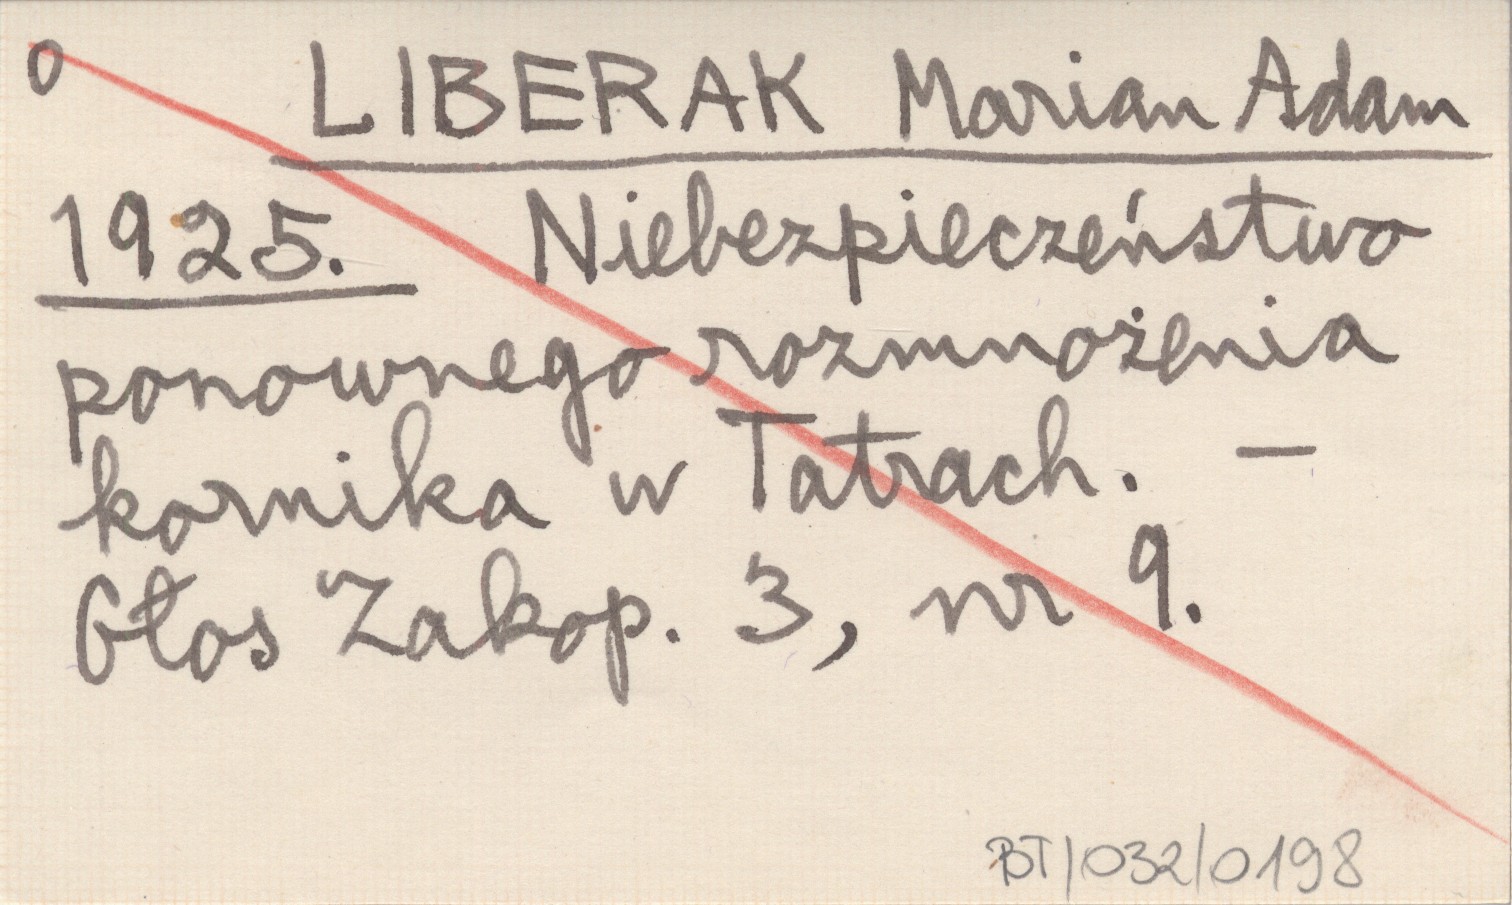 0 LIBERAK Marian Adam
1925. Niebezpieczeństwo
ponownego rozmnożenia
kornika w Tatrach. —
Głos Zakop. 3, nr 9.
BT/032/0198